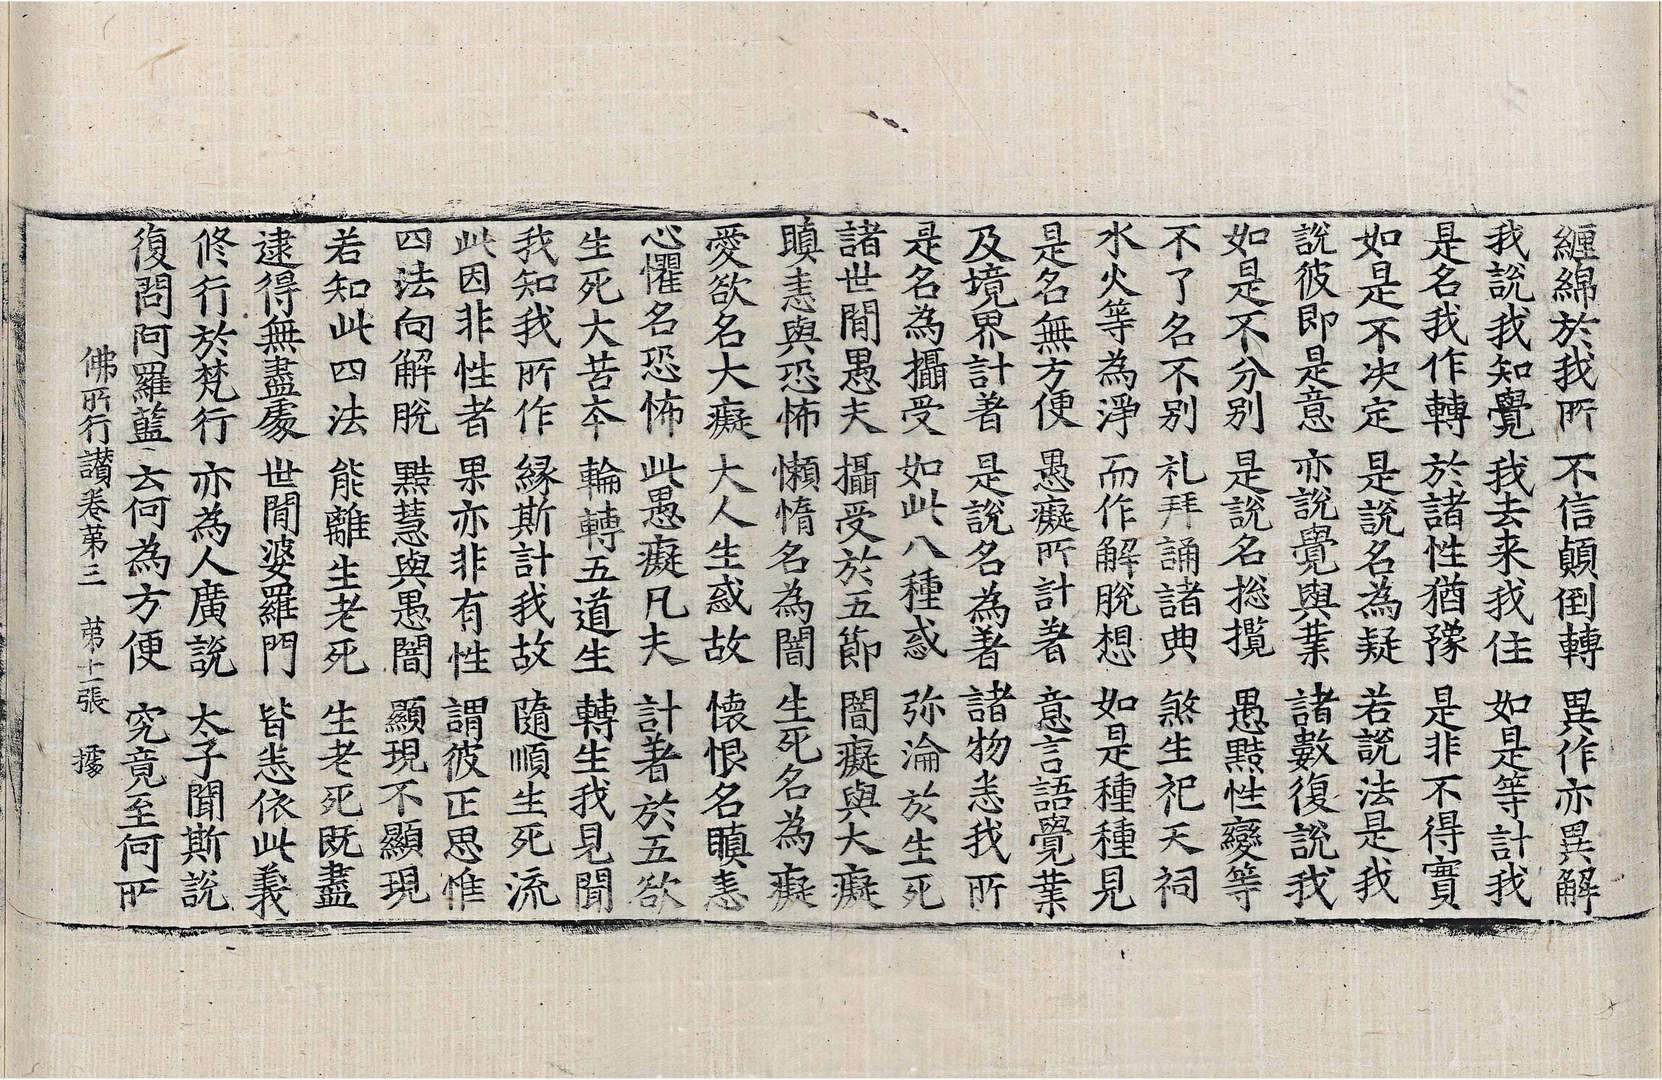 纏綿於我所 不信顛倒轉 異作亦異解
我說我知覺 我去来我住 如是等計我
是名我作轉 於諸性猶豫 是非不得實
如是不決定 是說名為疑 若說法是我
說彼即是意 亦說覺與業 諸數復說我
如是不分别 是說名捴攬 愚黠性變等
不了名不别 礼拜誦諸典 煞生祀天祠
水火等為淨 而作解脫想 如是種種見
是名無方便 愚癡所計著 意言語覺業
及境界計著 是說名為著 諸物悉我所
是名為攝受 如此八種惑 弥淪於生死
諸世間愚夫 攝受於五節 闇癡與大癡
瞋恚與恐怖 懶惰名為闇 生死名為癡
愛欲名大癡 大人生惑故 懐恨名瞋恚
心懼名恐怖 此愚癡凡夫 計著於五欲
生死大苦夲 輪轉五道生 轉生我見聞
我知我所作 縁斯計我故 隨順生死流
此因非性者 果亦非有性 謂彼正思惟
四法向解脫 黠慧與愚闇 顯現不顯現
若知此四法 能離生老死 生老死既盡
逮得無盡處 世間婆羅門 皆悉依此義
修行於梵行 亦為人廣說 太子聞斯說
復問阿羅藍 云何為方便 究竟至何所
佛所行讃卷第三 第十一張 據